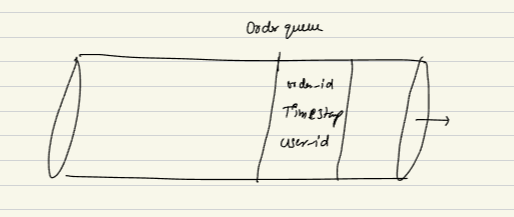 Order queue
order-id
Timestap
user-id